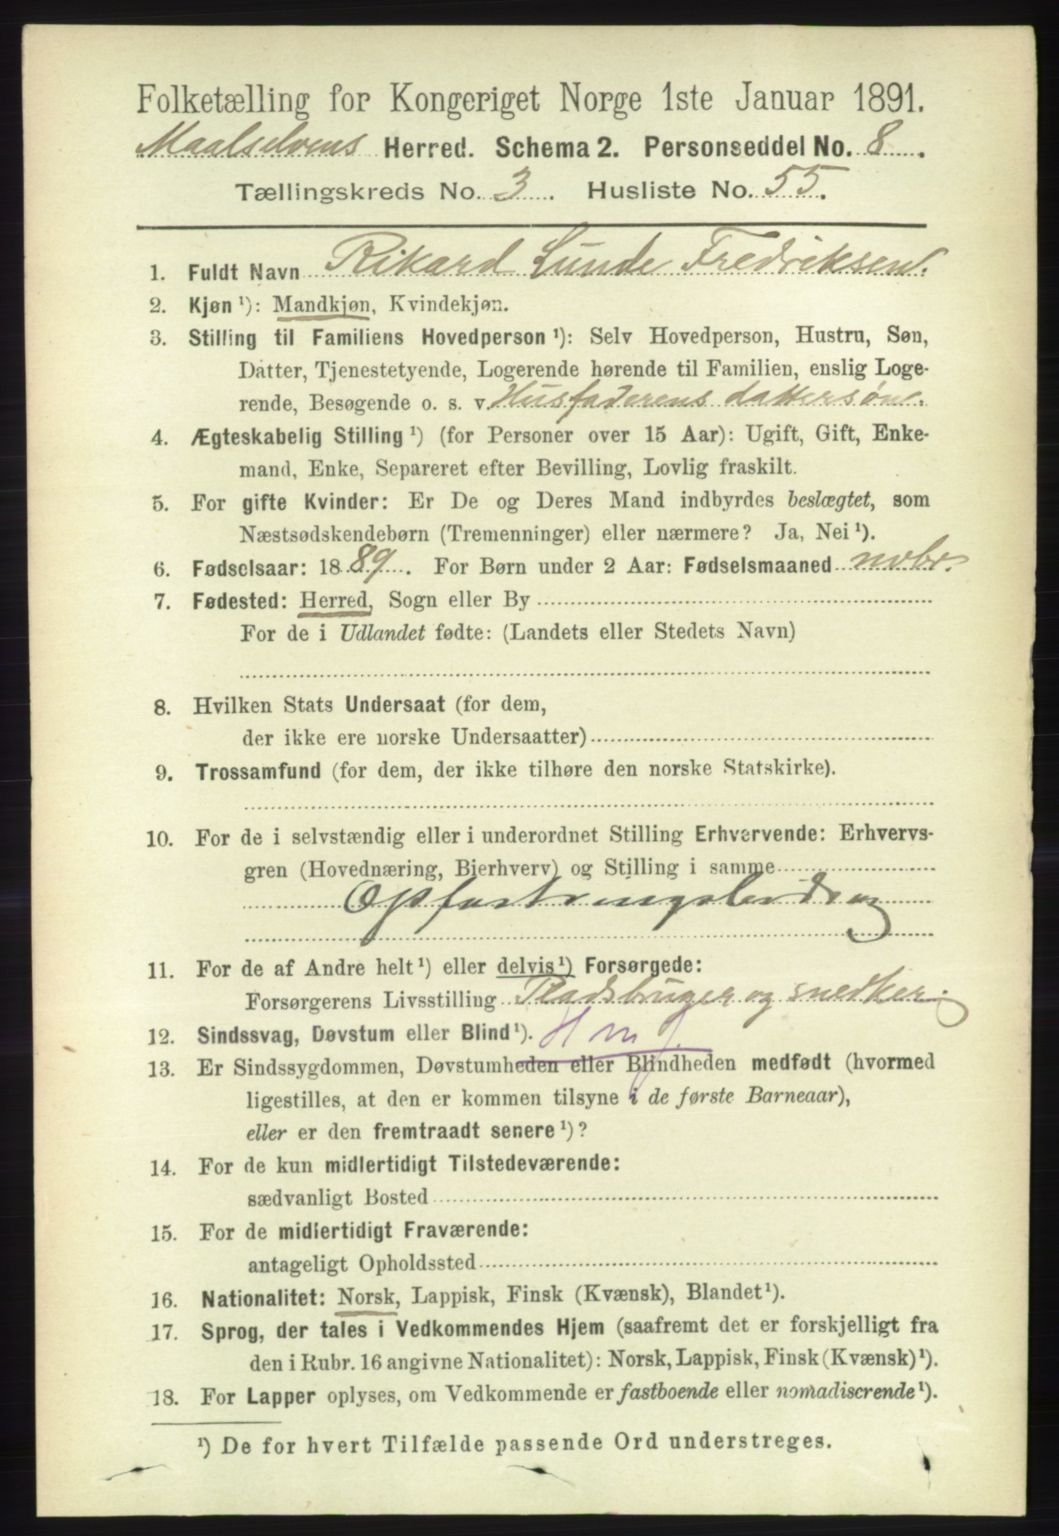 Folketælling for Kongeriget Norge 1ste Januar 1891.
Maalselvens Herred. Schema 2. Personseddel No. 8.
Tællingskreds No. 3. Husliste No. 55.
1. Fuldt Navn Rikard Lunde Fredriksen.
2. Kjøn ¹): Mandkjøn, Kvindekjøn.
3. Stilling til Familiens Hovedperson ¹): Selv Hovedperson, Hustru, Søn,
Datter, Tjenestetyende, Logerende hørende til Familien, enslig Loge-
rende, Besøgende o. s. v. Husfaderens dattersøn.
4. Ægteskabelig Stilling ¹) (for Personer over 15 Aar): Ugift, Gift, Enke-
mand, Enke, Separeret efter Bevilling, Lovlig fraskilt.
5. For gifte Kvinder: Er De og Deres Mand indbyrdes beslægtet, som
Næstsødskendebørn (Tremenninger) eller nærmere? Ja, Nei ¹).
6. Fødselsaar: 1889. For Børn under 2 Aar: Fødselsmaaned novbr.
7. Fødested: Herred, Sogn eller By
For de i Udlandet fødte: (Landets eller Stedets Navn)
8. Hvilken Stats Undersaat (for dem,
der ikke ere norske Undersaatter)
9. Trossamfund (for dem, der ikke tilhøre den norske Statskirke).
10. For de i selvstændig eller i underordnet Stilling Erhvervende: Erhvervs-
gren (Hovednæring, Bierhverv) og Stilling i samme
11. For de af Andre helt ¹) eller delvis ¹) Forsørgede:
Forsørgerens Livsstilling Pladsbruger og snedker.
12. Sindssvag, Døvstum eller Blind ¹).
13. Er Sindssygdommen, Døvstumheden eller Blindheden medfødt (hvormed
ligestilles, at den er kommen tilsyne i de første Barneaar),
eller er den fremtraadt senere ¹)?
14. For de kun midlertidigt Tilstedeværende:
sædvanligt Bosted
15. For de midlertidigt Fraværende:
antageligt Opholdssted
16. Nationalitet: Norsk, Lappisk, Finsk (Kvænsk), Blandet ¹).
17. Sprog, der tales i Vedkommendes Hjem (saafremt det er forskjelligt fra
den i Rubr. 16 angivne Nationalitet): Norsk, Lappisk, Finsk (Kvænsk) ¹).
18. For Lapper oplyses, om Vedkommende er fastboende eller nomadiserende ¹).
¹) De for hvert Tilfælde passende Ord understreges.